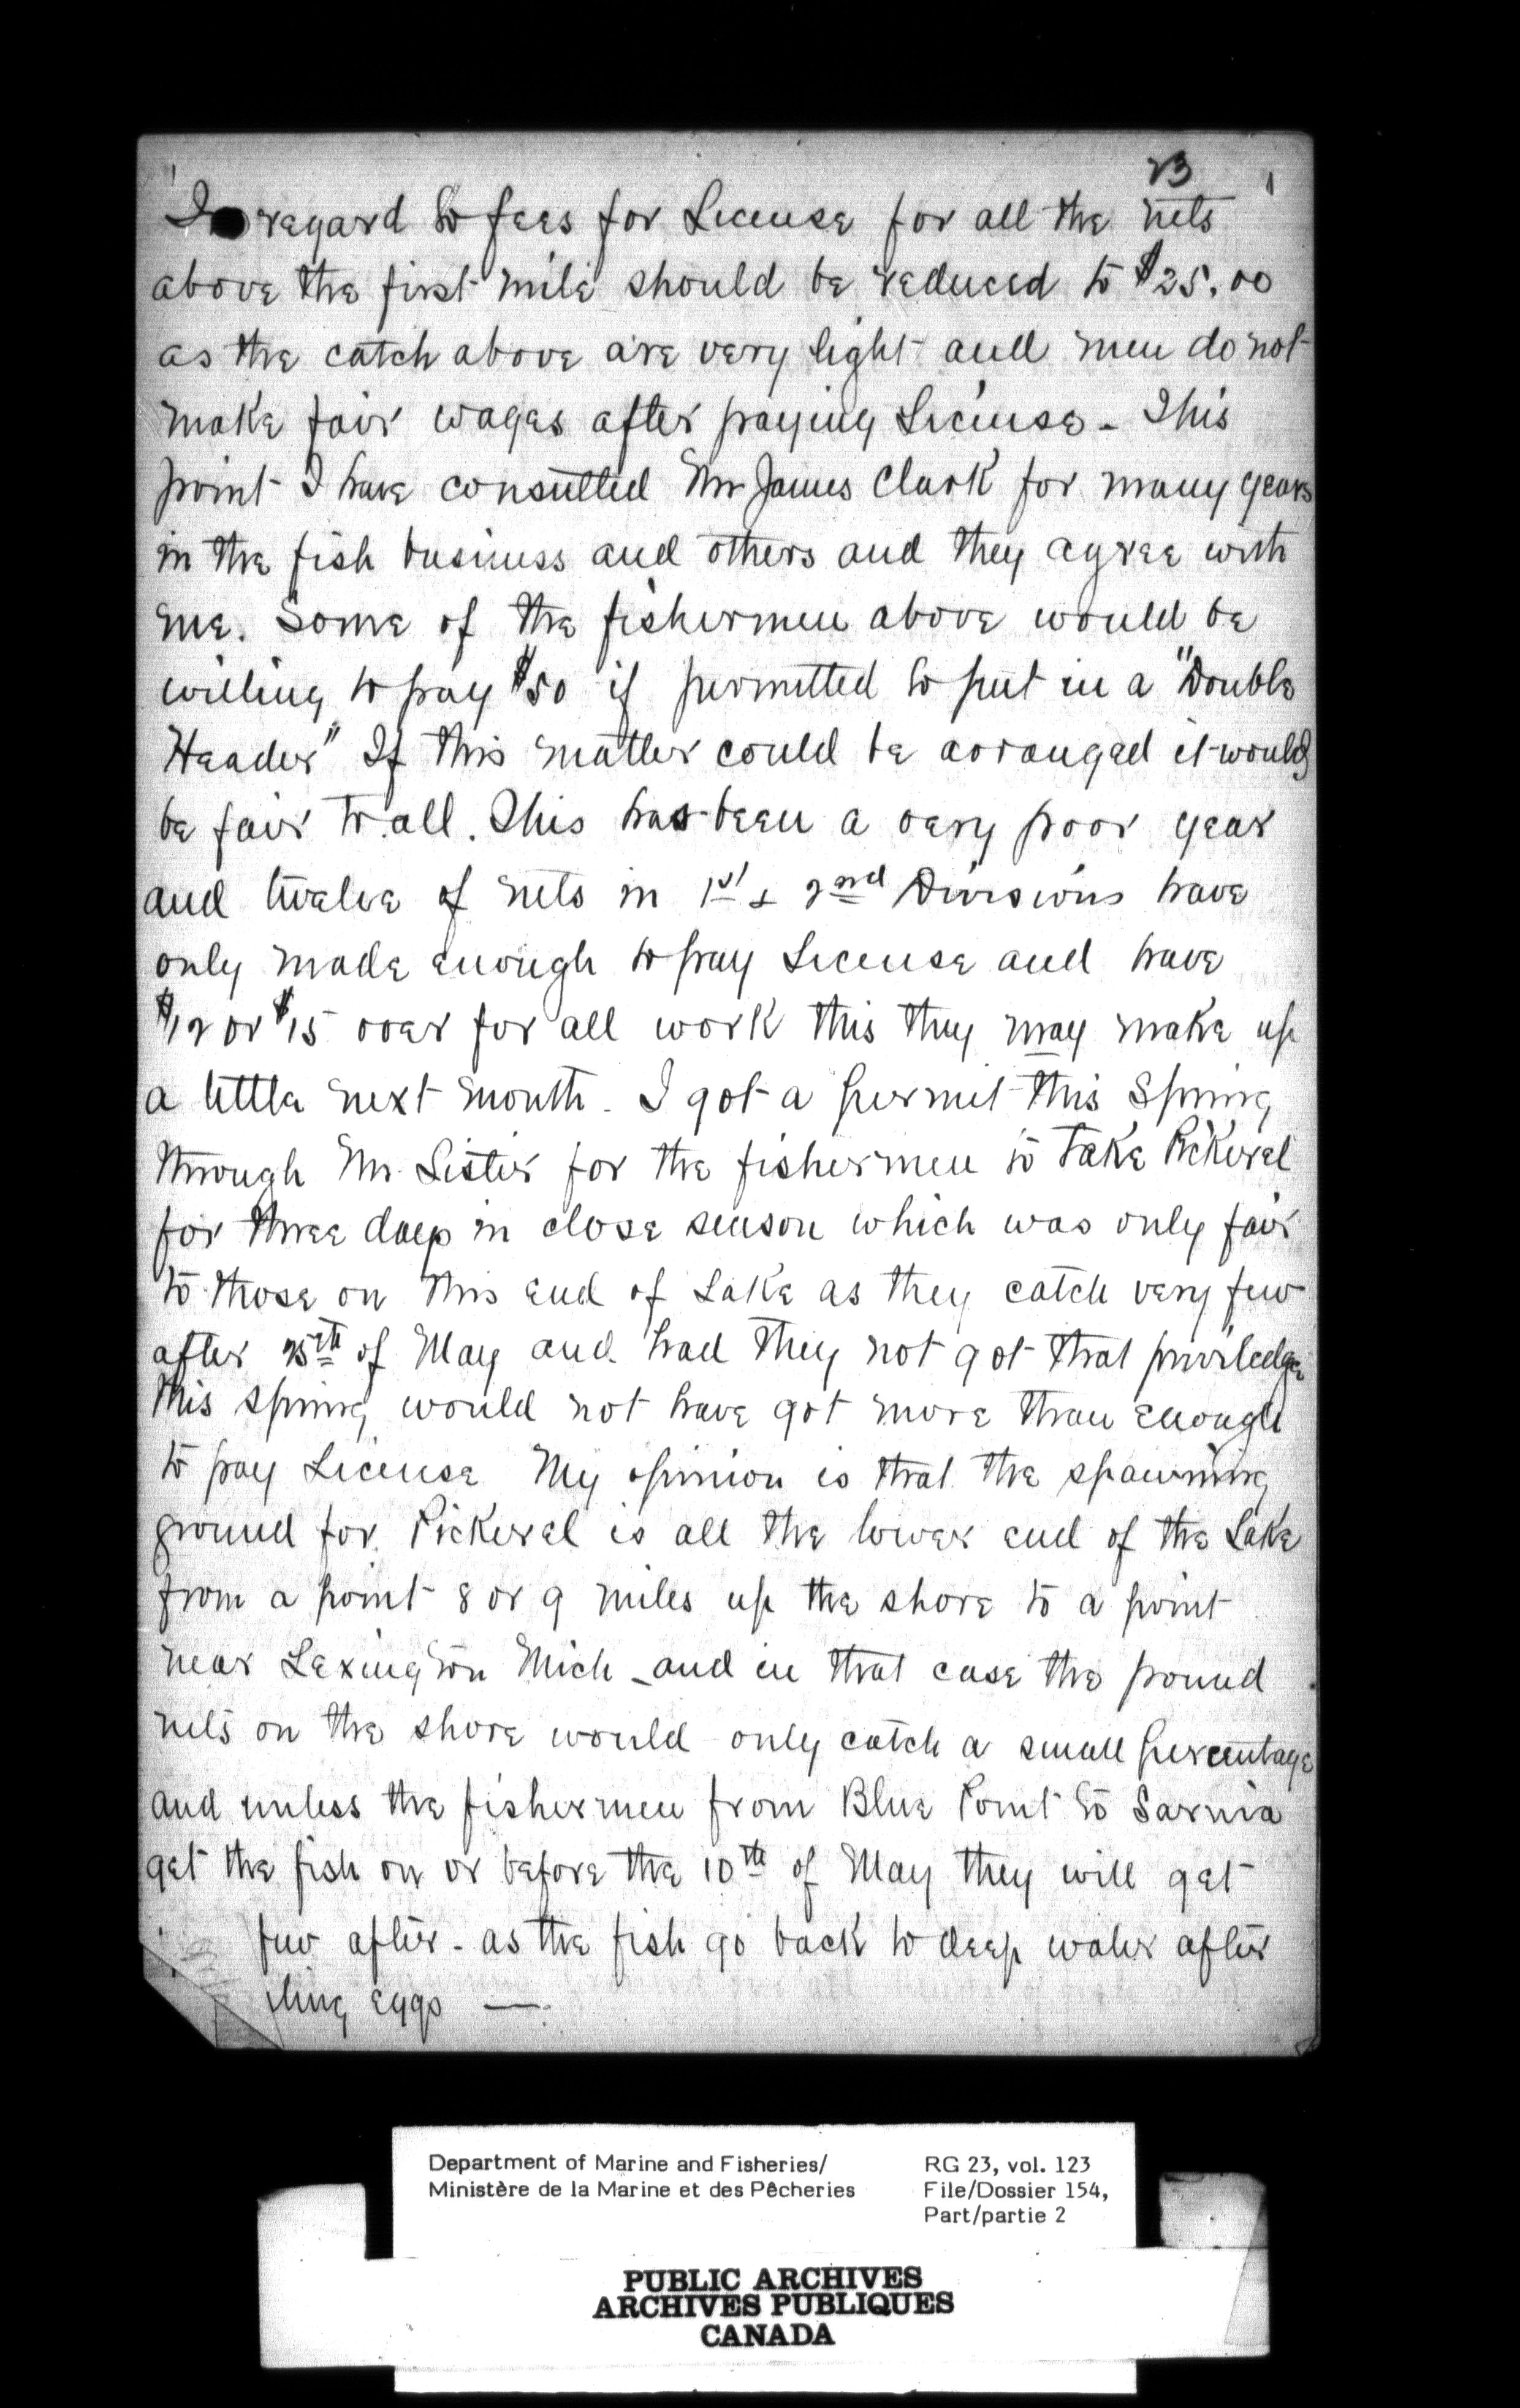 23
In regard to fees for License for all the nets
above the first mile should be reduced to $25.00
as the catch above are very light and men do not
make fair wages after paying License - This
point I have consulted Mr James Clark for many years
in the fish business and others and they agree with
me. Some of the fishermen above would be
willing to pay $50 if permitted to put in a "Double
Header" If this matter could be arranged it would
be fair to all. This has been a very poor year
and twelve of nets in 1st & 2nd Divisions have
only made enough to pay License and have
$12 or $15 over for all work this they may make up
a little next month. I got a permit this Spring
through Mr. Lister for the fishermen to take Pickerel
for three days in close season which was only fair
to those on this end of Lake as they catch very few
after 25th of May and had they not got that priviledge
this spring would not have got more than enough
to pay License My opinion is that the spawning
ground for Pickerel is all the lower end of the Lake
from a point 8 or 9 miles up the shore to a point
near Lexington Mich - and in that case the pound
nets on the shore would only catch a small percentage
and unless the fishermen from Blue Point to Sarnia
get the fish on or before the 10th of May they will get
few after - as the fish go back to deep water after
eggs —
Department of Marine and Fisheries/ RG 23, vol. 123
Ministère de la Marine et des Pêcheries File/Dossier 154,
Part/partie 2
PUBLIC ARCHIVES
ARCHIVES PUBLIQUES
CANADA